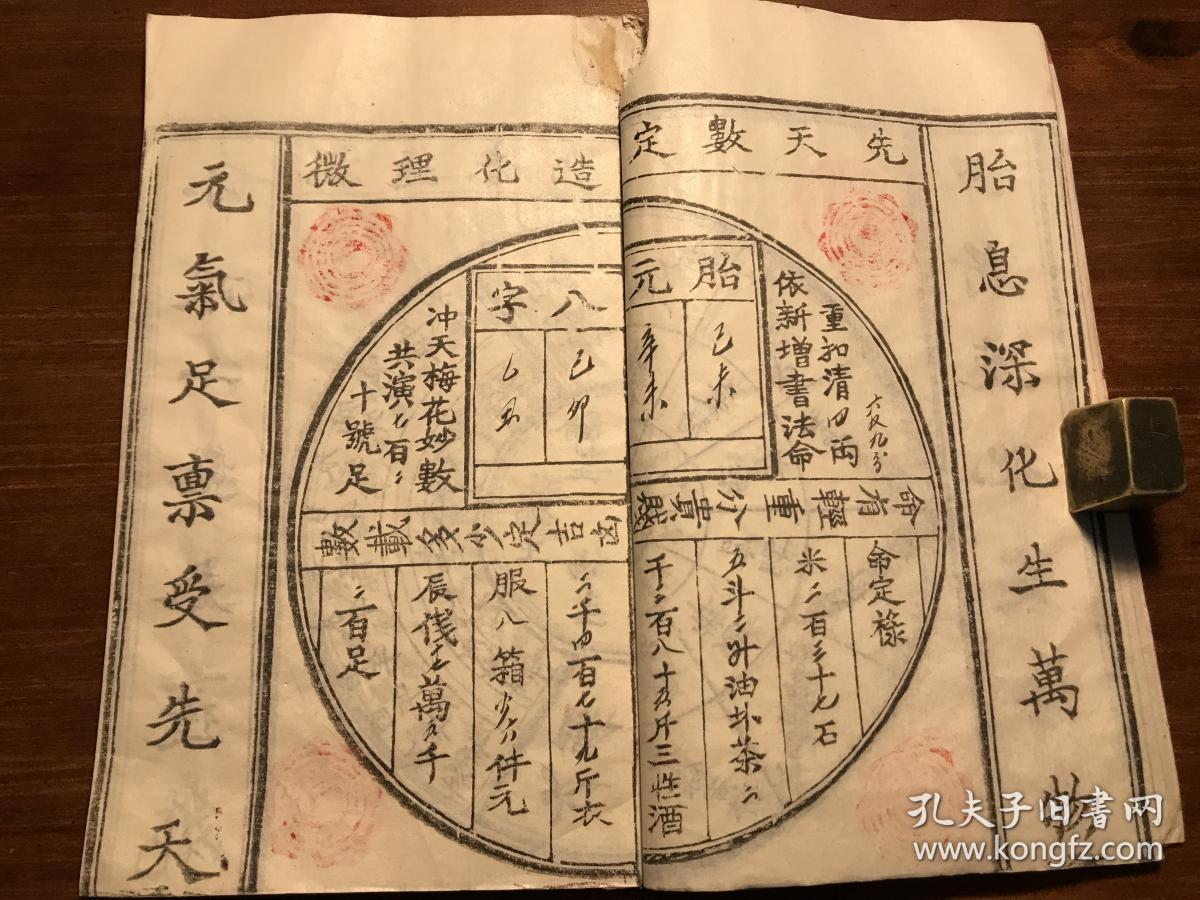 胎息深化生萬物
先天數定
造化理微
重扣清四兩
六錢九分
依新增書法命
胎元
己未
辛未
八字
己卯
乙丑
冲天梅花妙數
共演七百
十號足
命有輕重分貴賤
凶吉定少多載數
命定祿
米二百三十七石
五斗二升油卦茶二
千二百八十五斤三牲酒
二千四百七十九斤衣
服八箱少八件元
辰錢七萬五千
二百足
元氣足禀受先天
孔夫子旧书网
www.kongfz.com